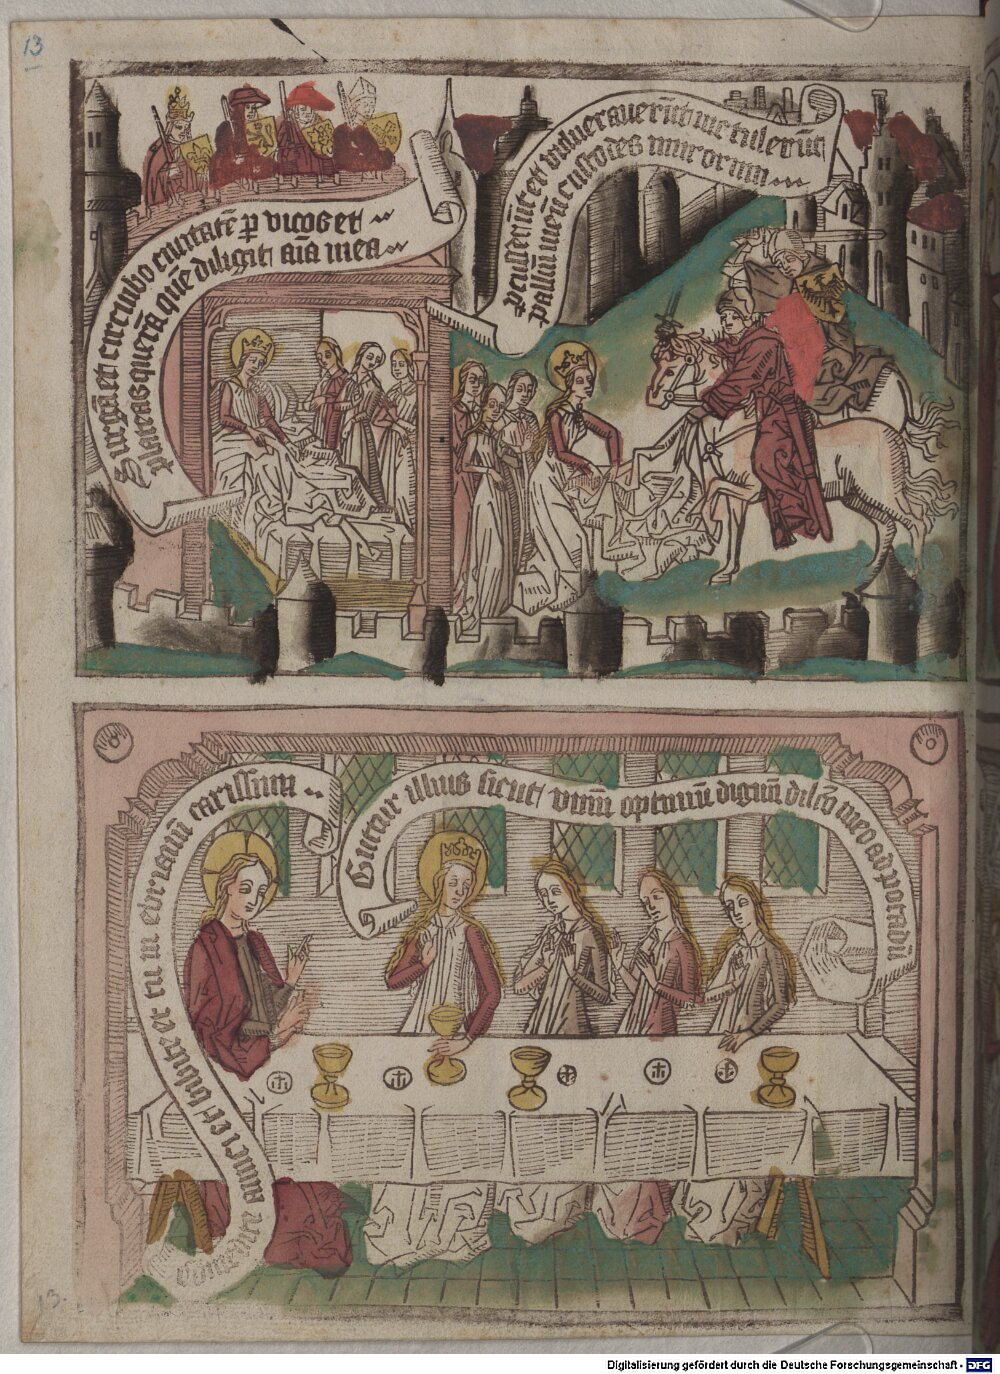 13
Surgā et circuibo civitatē ꝑ vicos et
plateas querā quē diligit aīa mea
percusserūt me et vulneraverūt me tulerūt
palliū meū custodes murorum
Comedite amici et bibite et inebriamī carissimi
Guttur illius sicut vinū optimū dignū dilc̄o meo ad potādū
13.
Digitalisierung gefördert durch die Deutsche Forschungsgemeinschaft - DFG